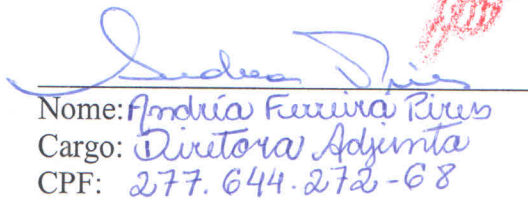 Andrea Pires
Nome: Andréa Ferreira Pires
Cargo: Diretora Adjunta
CPF: 277.644.272-68